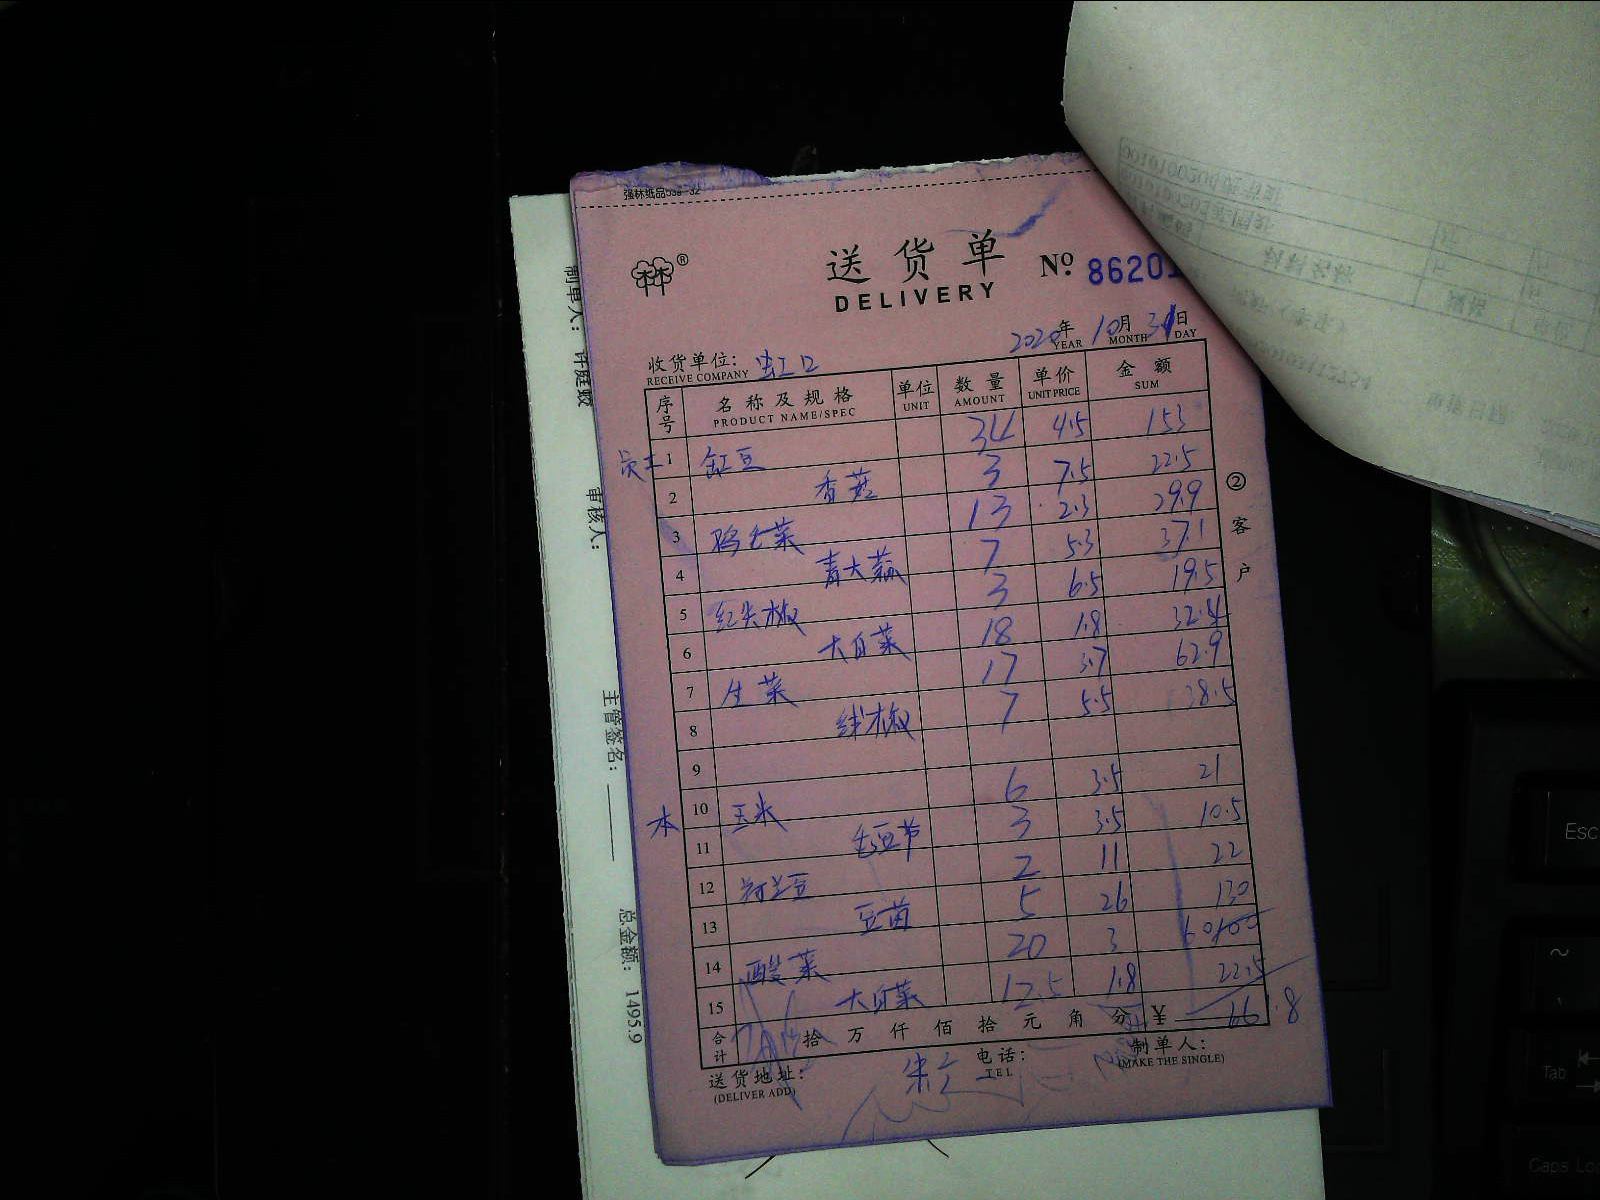 强林纸品
送货单 № 86201
DELIVERY
2020年 10月 31日
YEAR MONTH DAY
收货单位: 虹口
RECEIVE COMPANY
序号 名称及规格 单位 数量 单价 金额
PRODUCT NAME/SPEC UNIT AMOUNT UNIT PRICE SUM
员工 1 缸豆 34 4.5 153
2 香菇 3 7.5 22.5
3 鸡毛菜 13 2.3 29.9
4 青大蒜 7 5.3 37.1
5 红尖椒 3 6.5 19.5
6 大白菜 18 1.8 32.4
7 生菜 17 3.7 62.9
8 线椒 7 5.5 38.5
9
本 10 玉米 6 3.5 21
11 毛豆节 3 3.5 10.5
12 荷兰豆 2 11 22
13 豆苗 5 26 130
14 酸菜 20 3 60
15 大白菜 12.5 1.8 22.5
合计 拾 万 仟 佰 拾 元 角 分 ¥ 661.8
送货地址: 电话: 制单人:
(DELIVER ADD) TEL (MAKE THE SINGLE)
② 客户
制单人: 许庭
审核人:
主管签名:
总金额: 1495.9
Esc
~
Tab
Caps Lo